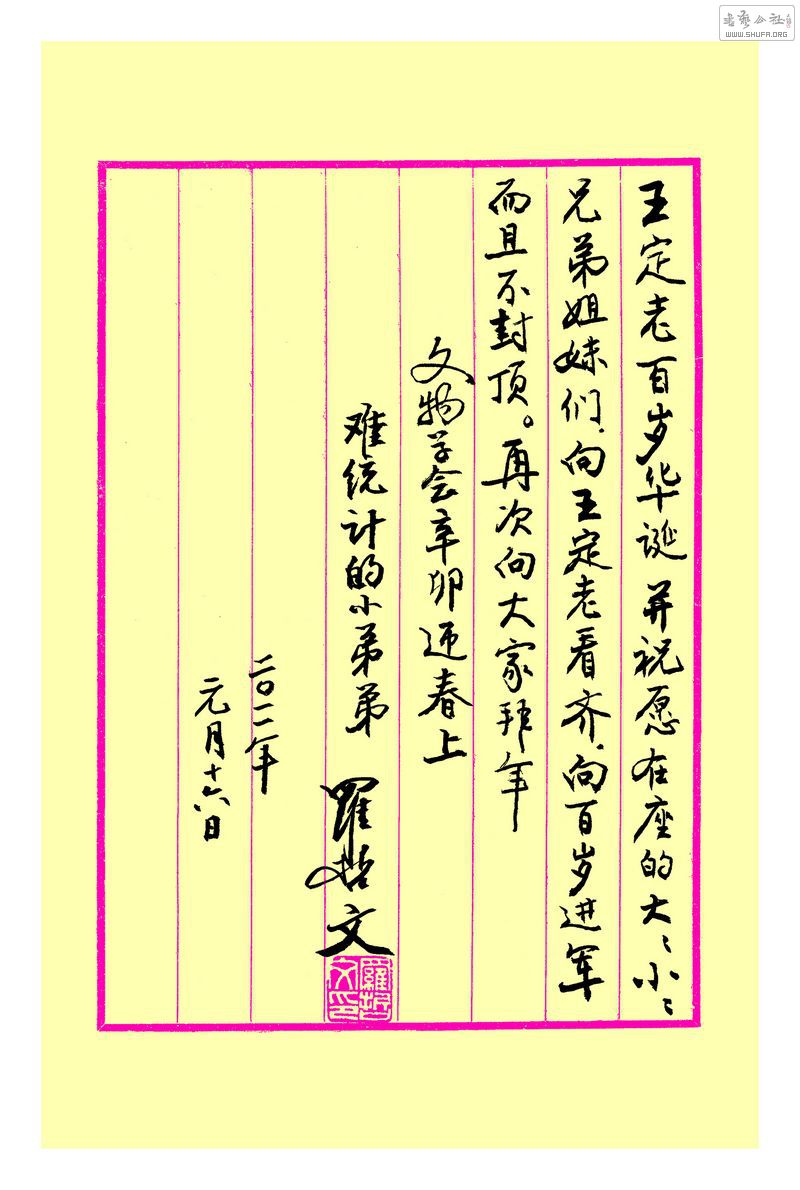 王定老百岁华诞 并祝愿在座的大﹅小﹅
兄弟姐妹们.向王定老看齐.向百岁进军
而且不封顶。再次向大家拜年
文物学会辛卯迎春上
难统计的小弟弟 罗哲文
二〇一一年
元月十六日
羅哲文印
書藝公社
WWW.SHUFA.ORG